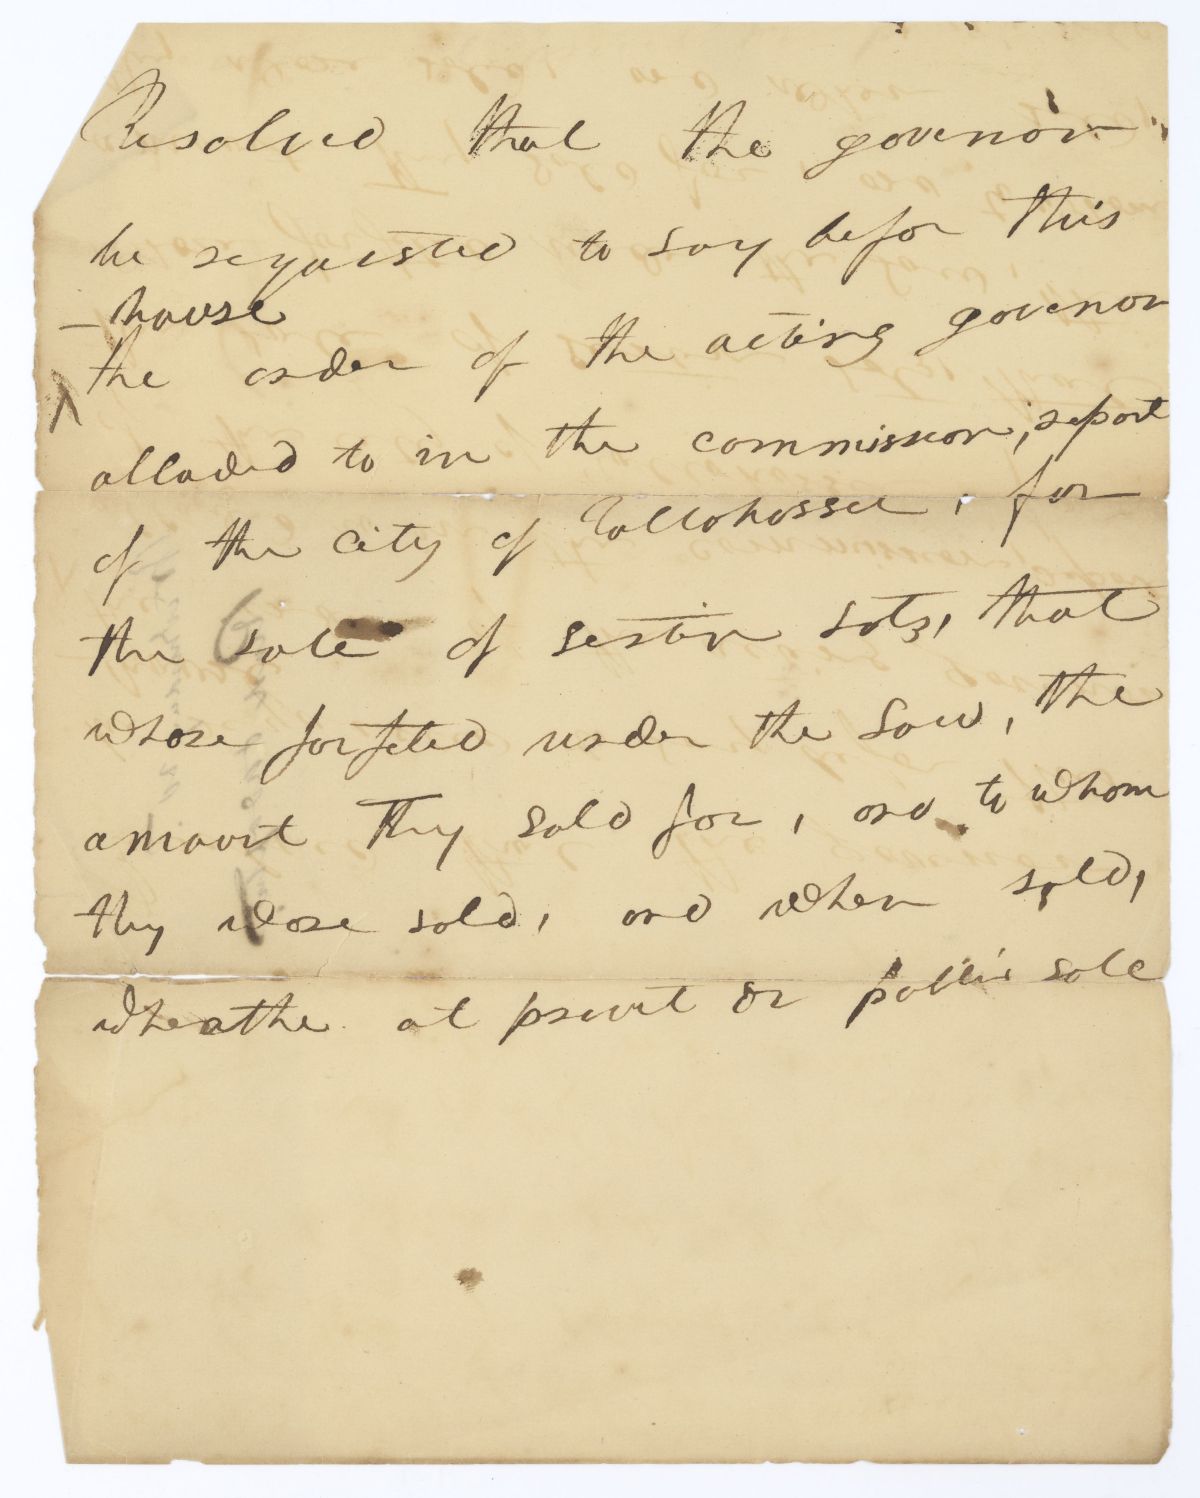 Resolved that the govenor
be requested to lay befor this
house
the order of the acting govenor
alluded to in the commissioner, report
of the city of Tallahassee, for
the sale of sertin lots, that
whare forfeted under the law, the
amount they sold for, and to whom
they ware sold, and when sold,
wheathe at privet or public sale